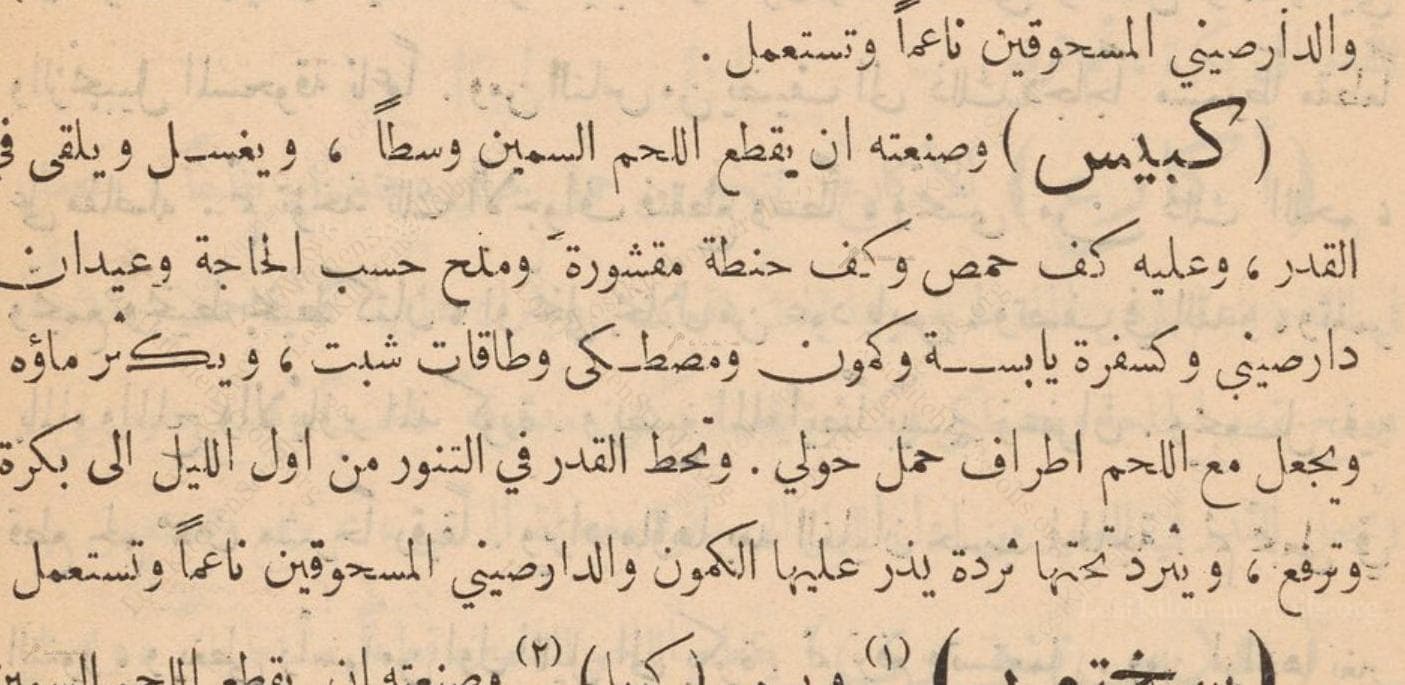 والدارصيني المسحوقين ناعماً وتستعمل .
( كبيس ) وصنعته ان يقطع اللحم السمين وسطاً ، ويغسل ويلقى في
القدر ، وعليه كف حمص وكف حنطة مقشورة وملح حسب الحاجة وعيدان
دارصيني وكسفرة يابسة وكمون ومصطكى وطاقات شبت ، ويكثر ماؤه
ويجعل مع اللحم اطراف حمل حولي . وتحط القدر في التنور من اول الليل الى بكرة
وترفع ، ويثرد تحتها ثردة يذر عليها الكمون والدارصيني المسحوقين ناعماً وتستعمل
(١) (٢) وصنعته ان يقطع اللحم السمين